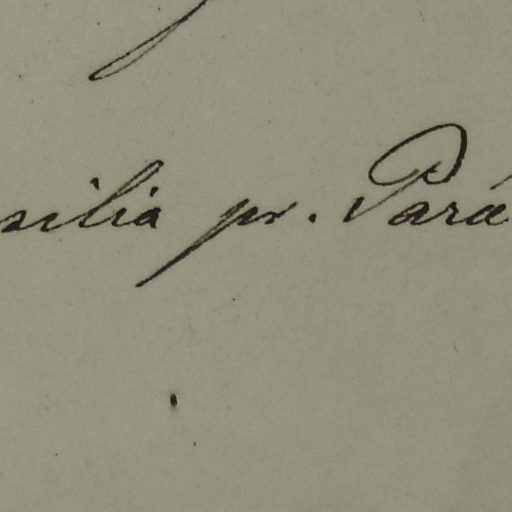 silia pr. Pará